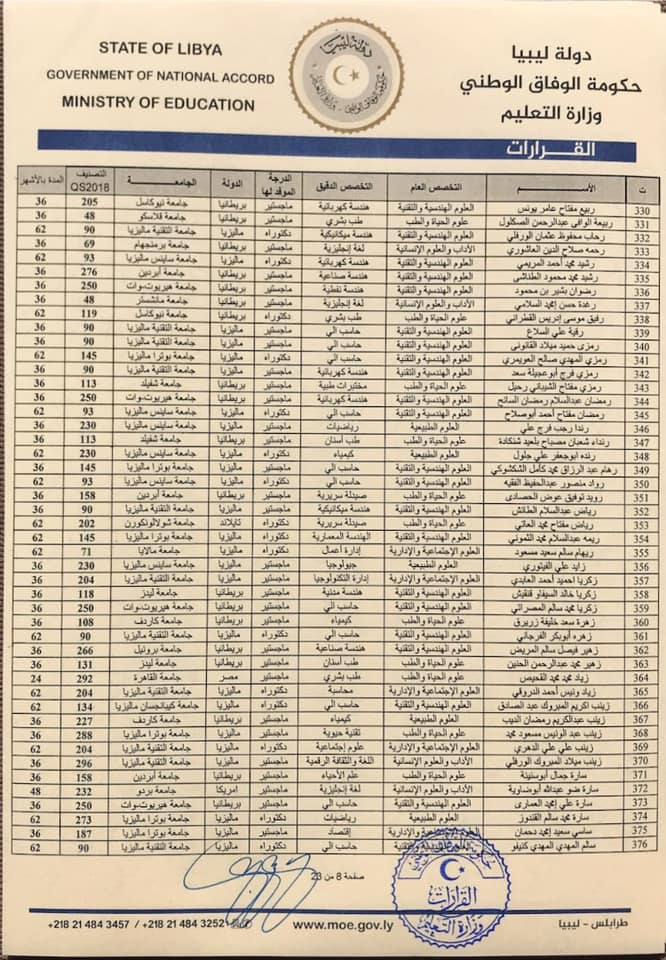 STATE OF LIBYA
GOVERNMENT OF NATIONAL ACCORD
MINISTRY OF EDUCATION
دولة ليبيا
حكومة الوفاق الوطني
وزارة التعليم
القرارات
ت الأســم التخصص العام التخصص الدقيق الدرجة الموفد لها الدولة الجامعــة التصنيف QS2018 المدة بالأشهر
330 ربيع مفتاح عامر يونس العلوم الهندسية والتقنية هندسة كهربائية ماجستير بريطانيا جامعة نيوكاسل 205 36
331 ربيعة الوافي عبدالرحمن الصكلول علوم الحياة والطب طب بشري ماجستير بريطانيا جامعة قلاسكو 48 36
332 رحاب محفوظ عثمان الورفلي العلوم الهندسية والتقنية هندسة ميكانيكية دكتوراه ماليزيا جامعة التقنية ماليزيا 90 62
333 رحمه صلاح الدين العاشوري الآداب والعلوم الإنسانية لغة إنجليزية ماجستير بريطانيا جامعة برمنجهام 69 36
334 رشيد محمد أحمد المريمي العلوم الهندسية والتقنية هندسة كهربائية دكتوراه ماليزيا جامعة ساينس ماليزيا 93 62
335 رشيد محمد محمود الطاشى العلوم الهندسية والتقنية هندسة صناعية ماجستير بريطانيا جامعة أبردين 276 36
336 رضوان بشير بن محمود العلوم الهندسية والتقنية هندسة نفطية ماجستير بريطانيا جامعة هيريوت-وات 250 36
337 رغدة حسن إمحمد السلامي الآداب والعلوم الإنسانية لغة إنجليزية ماجستير بريطانيا جامعة مانشستر 48 36
338 رفيق موسى إدريس القطراني علوم الحياة والطب طب بشري دكتوراه بريطانيا جامعة نيوكاسل 119 62
339 رقية علي السلاخ العلوم الهندسية والتقنية حاسب ألي ماجستير ماليزيا جامعة التقنية ماليزيا 90 36
340 رمزى حميد ميلاد القانونى العلوم الهندسية والتقنية حاسب ألي ماجستير ماليزيا جامعة التقنية ماليزيا 90 36
341 رمزي المهدي صالح العويمري العلوم الهندسية والتقنية حاسب ألي دكتوراه ماليزيا جامعة بوترا ماليزيا 145 62
342 رمزي فرج أبوعجيلة سعد العلوم الهندسية والتقنية هندسة كهربائية ماجستير ماليزيا جامعة التقنية ماليزيا 90 36
343 رمزي مفتاح الشيباني رحيل علوم الحياة والطب مختبرات طبية ماجستير بريطانيا جامعة شفيلد 113 36
344 رمضان عبدالسلام رمضان السائح العلوم الهندسية والتقنية هندسة كهربائية ماجستير بريطانيا جامعة هيريوت-وات 250 36
345 رمضان مفتاح أحمد أبوصلاح العلوم الهندسية والتقنية حاسب ألي دكتوراه ماليزيا جامعة ساينس ماليزيا 93 62
346 رندا رجب فرج علي العلوم الطبيعية رياضيات ماجستير ماليزيا جامعة ساينس ماليزيا 230 36
347 رنداء شعبان مصباح بلعيد شنكادة علوم الحياة والطب طب أسنان ماجستير بريطانيا جامعة شفيلد 113 36
348 رنده ابوجعفر علي جلول العلوم الطبيعية كيمياء دكتوراه ماليزيا جامعة ساينس ماليزيا 230 62
349 رهام عبد الرزاق محمد كامل الشكشوكي العلوم الهندسية والتقنية حاسب ألي ماجستير ماليزيا جامعة بوترا ماليزيا 145 36
350 رواد منصور عبدالحفيظ الفقيه العلوم الهندسية والتقنية حاسب ألي دكتوراه ماليزيا جامعة ساينس ماليزيا 93 62
351 رويد توفيق عوض الحصادى علوم الحياة والطب صيدلة سريرية ماجستير بريطانيا جامعة أبردين 158 36
352 رياض عبدالسلام الطائش العلوم الهندسية والتقنية هندسة ميكانيكية ماجستير ماليزيا جامعة التقنية ماليزيا 90 36
353 رياض مفتاح محمد العاتي علوم الحياة والطب صيدلة سريرية دكتوراه تايلاند جامعة شولالونكورن 202 62
354 ريمه عبدالسلام محمد الثمونى العلوم الهندسية والتقنية الهندسة المعمارية دكتوراه ماليزيا جامعة بوترا ماليزيا 145 62
355 ريهام سالم سعيد مسعود العلوم الإجتماعية والإدارية إدارة أعمال دكتوراه ماليزيا جامعة مالايا 71 62
356 زايد علي الفيتوري العلوم الطبيعية جيولوجيا ماجستير ماليزيا جامعة ساينس ماليزيا 230 36
357 زكريا احميد أحمد العابدي العلوم الإجتماعية والإدارية إدارة التكنولوجيا ماجستير ماليزيا جامعة التقنية ماليزيا 204 36
358 زكريا خالد السيفاو قنقيش العلوم الهندسية والتقنية هندسة مدنية ماجستير بريطانيا جامعة ليدز 118 36
359 زكريا محمد سالم المصراتي العلوم الهندسية والتقنية حاسب ألي ماجستير بريطانيا جامعة هيريوت-وات 250 36
360 زهرة سعد خليفة زريرق علوم الحياة والطب كيمياء ماجستير بريطانيا جامعة كاردف 108 36
361 زهره أبوبكر الفرجاني العلوم الهندسية والتقنية حاسب ألي دكتوراه ماليزيا جامعة التقنية ماليزيا 90 62
362 زهير فيصل سالم المريض العلوم الهندسية والتقنية هندسة صناعية ماجستير بريطانيا جامعة برونيل 266 36
363 زهير محمد عبدالرحمن الحنين علوم الحياة والطب طب أسنان ماجستير بريطانيا جامعة ليدز 131 36
364 زياد محمد محمد القحيص علوم الحياة والطب طب بشري ماجستير مصر جامعة القاهرة 292 24
365 زياد ونيس أحمد الدروقي العلوم الإجتماعية والإدارية محاسبة دكتوراه ماليزيا جامعة التقنية ماليزيا 204 62
366 زينب اكريم المبروك عبد الصادق العلوم الهندسية والتقنية حاسب ألي دكتوراه ماليزيا جامعة كيبانجسان ماليزيا 134 62
367 زينب عبدالكريم رمضان الديب العلوم الطبيعية كيمياء ماجستير بريطانيا جامعة كاردف 227 36
368 زينب عبد الونيس مسعود محمد العلوم الطبيعية تقنية حيوية ماجستير ماليزيا جامعة بوترا ماليزيا 288 36
369 زينب علي علي الدهري العلوم الإجتماعية والإدارية علوم إجتماعية دكتوراه ماليزيا جامعة التقنية ماليزيا 204 62
370 زينب ميلاد المبروك الورفلي الآداب والعلوم الإنسانية اللغة والثقافة الرقمية ماجستير ماليزيا جامعة التقنية ماليزيا 296 36
371 سارة جمال أبوسنينة علوم الحياة والطب علم الأحياء ماجستير بريطانيا جامعة أبردين 158 36
372 سارة ضو عبدالله أبوضاوية الآداب والعلوم الإنسانية لغة إنجليزية ماجستير امريكا جامعة بردو 232 48
373 سارة علي إمحمد العمارى العلوم الهندسية والتقنية حاسب ألي ماجستير بريطانيا جامعة هيريوت-وات 250 36
374 سارة محمد سالم القندوز العلوم الطبيعية رياضيات دكتوراه ماليزيا جامعة بوترا ماليزيا 273 62
375 ساسي سعيد محمد دحمان العلوم الإجتماعية والإدارية إقتصاد ماجستير ماليزيا جامعة بوترا ماليزيا 187 36
376 سالم المهدي المهدي كنيفو العلوم الهندسية والتقنية حاسب ألي دكتوراه ماليزيا جامعة التقنية ماليزيا 90 62
صفحة 8 من 23
القرارات
وزارة التعليم
+218 21 484 3457 / +218 21 484 3252
www.moe.gov.ly
طرابلس - ليبيا